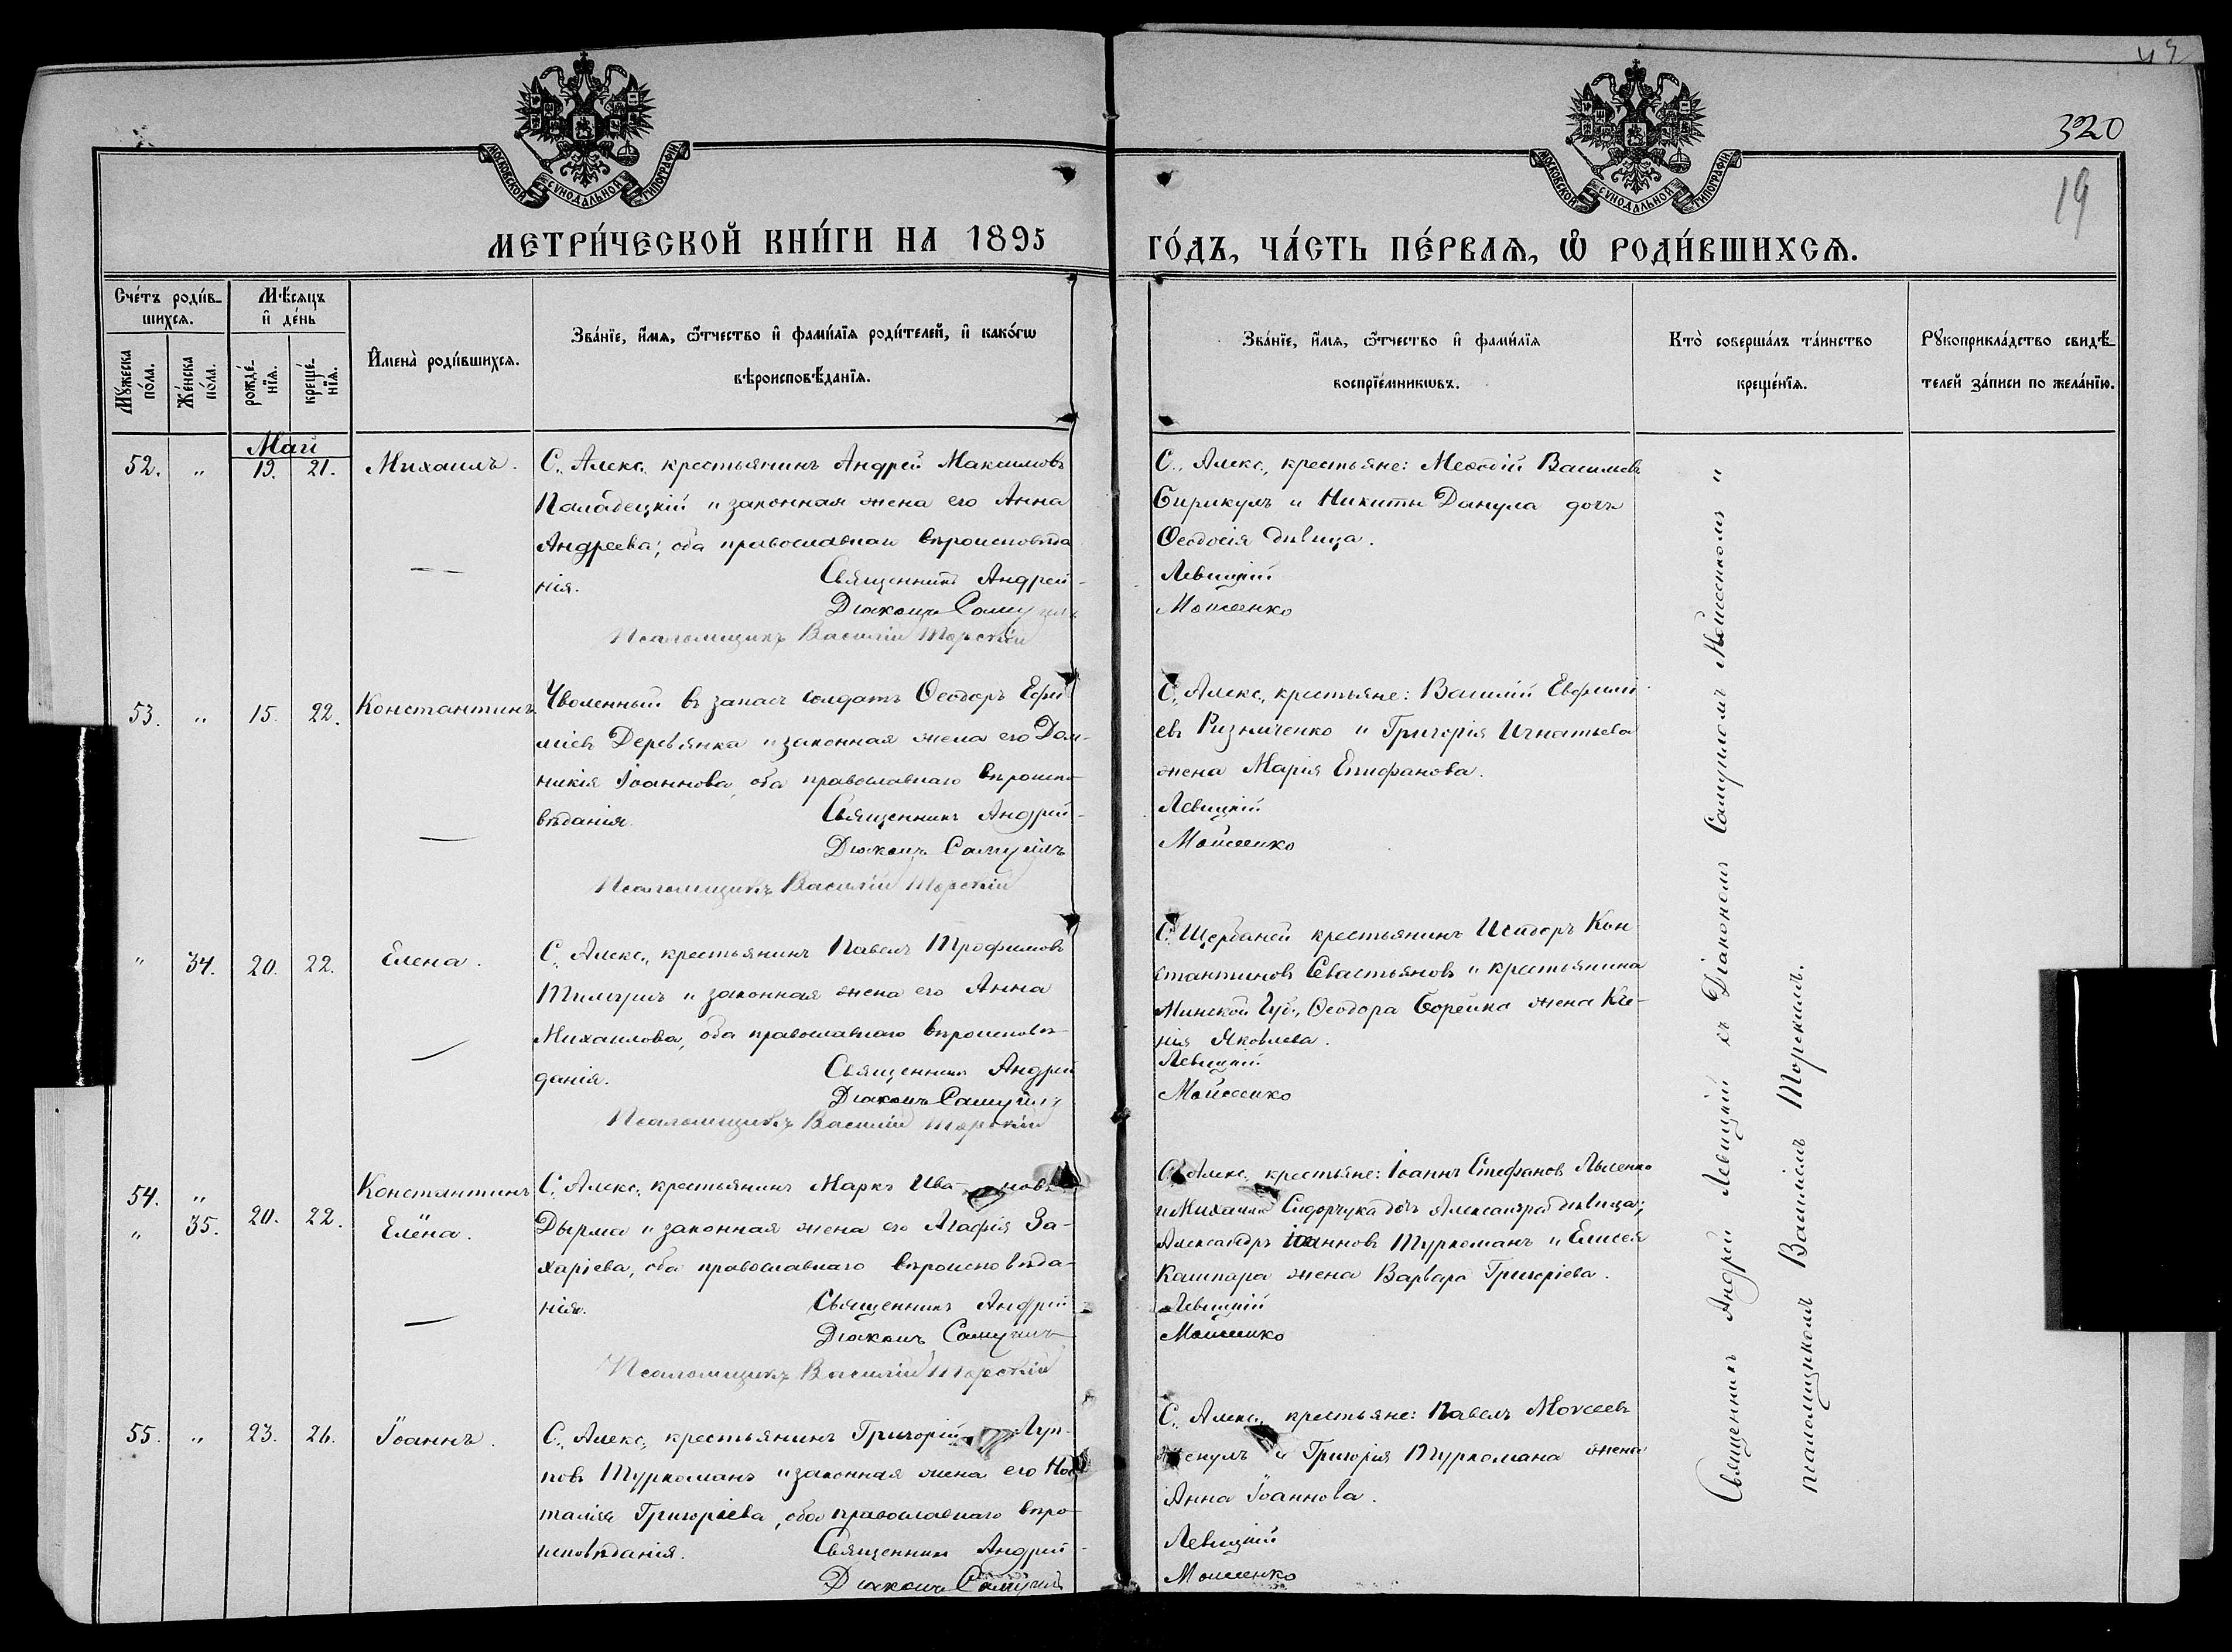 43
320
19
МОСКОВСКОЙ СѴНОДАЛЬНОЙ ТИПОГРАФІИ
МОСКОВСКОЙ СѴНОДАЛЬНОЙ ТИПОГРАФІИ
МЕТРИ́ЧЕСКОЙ КНИ́ГИ НА 1895 ГО́ДЪ, ЧА́СТЬ ПЕ́РВАѦ, Ѡ РОДИ́ВШИХСѦ.
Сче́тъ роди́в-
шихсѧ.
Мꙋ́жеска по́ла.
Же́нска по́ла.
Мѣ́сѧцъ
и де́нь
рожде́-
нїѧ.
креще́-
нїѧ.
Имена̀ роди́вшихсѧ.
Зва́нїе, и́мѧ, ѻ҆́тчество и фами́лїѧ роди́телей, и како́гѡ
вѣроисповѣ́данїѧ.
Зва́нїе, и́мѧ, ѻ҆́тчество и фами́лїѧ
воспрїе́мникѡвъ.
Кто̀ соверша́лъ та́инство
креще́нїѧ.
Рꙋкоприкла́дство свидѣ́-
телей за́писи по жела́нїю.
Май
52. " 19. 21. Михаилъ.
С. Алекс. крестьянинъ Андрей Максимовъ
Палабецкій и законная жена его Анна
Андреева; оба православнаго вѣроисповѣда
нія. Священникъ Андрей-
Діаконъ Самуилъ
Псаломщикъ Василій Торскій
С. Алекс. крестьяне: Меѳодій Васильевъ
Бирикулъ и Никиты Данула дочь
Ѳеодосія дѣвица.
Левицкій
Моисеенко
53. " 15. 22. Константинъ
Уволенный въ запасъ солдатъ Ѳеодоръ Ефи
міевъ Деревянка и законная жена его Дом-
никія Іоаннова, оба православнаго вѣроиспо
вѣданія. Священникъ Андрей-
Діаконъ Самуилъ
Псаломщикъ Василій Торскій
С. Алекс. крестьяне: Василій Евфими
евъ Ризниченко и Григорія Игнатьева
жена Марія Епифанова.
Левицкій
Моисеенко
" 34. 20. 22. Елена.
С. Алекс. крестьянинъ Павелъ Трофимовъ
и законная жена его Анна
Михаилова, оба православнаго вѣроисповѣ-
данія. Священникъ Андрей
Діаконъ Самуилъ
Псаломщикъ Василій Торскій
С. Щербаней крестьянинъ Исидоръ Кон
стантиновъ Севастьяновъ и крестьянина
Минской Губ., Ѳеодора Борейка жена Ксе-
нія Яковлева.
Левицкій
Моисеенко
54. " 20. 22. Константинъ
" 35. Елена.
С. Алекс. крестьянинъ Маркъ Ива-новъ
Дырма и законная жена его Агафія За-
харіева, оба православнаго вѣроисповѣда-
нія. Священникъ Андрей
Діаконъ Самуилъ
Псаломщикъ Василій Торскій
С. Алекс. крестьяне: Іоаннъ Стефановъ
и Михаила Сидорчука дочь Александра дѣвица;
Александръ Іоанновъ Туркоманъ и Елисея
Кашпара жена Варвара Григоріева.
Левицкій
Моисеенко
55. " 23. 26. Іоаннъ.
С. Алекс. крестьянинъ Григорій Луп-
повъ Туркоманъ и законная жена его На
талія Григоріева, оба православнаго вѣро
исповѣданія. Священникъ Андрей-
Діаконъ Самуилъ
С. Алекс. крестьяне: Павелъ Моисеевъ
и Григорія Туркомана жена
Анна Іоаннова.
Левицкій
Моисеенко
Священникъ Андрей Левицкій съ Діакономъ Самуиломъ Моисеенкомъ "
псаломщикомъ Василіемъ Торскимъ.